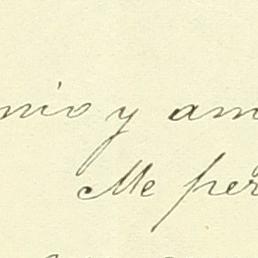 mio y am
Me per